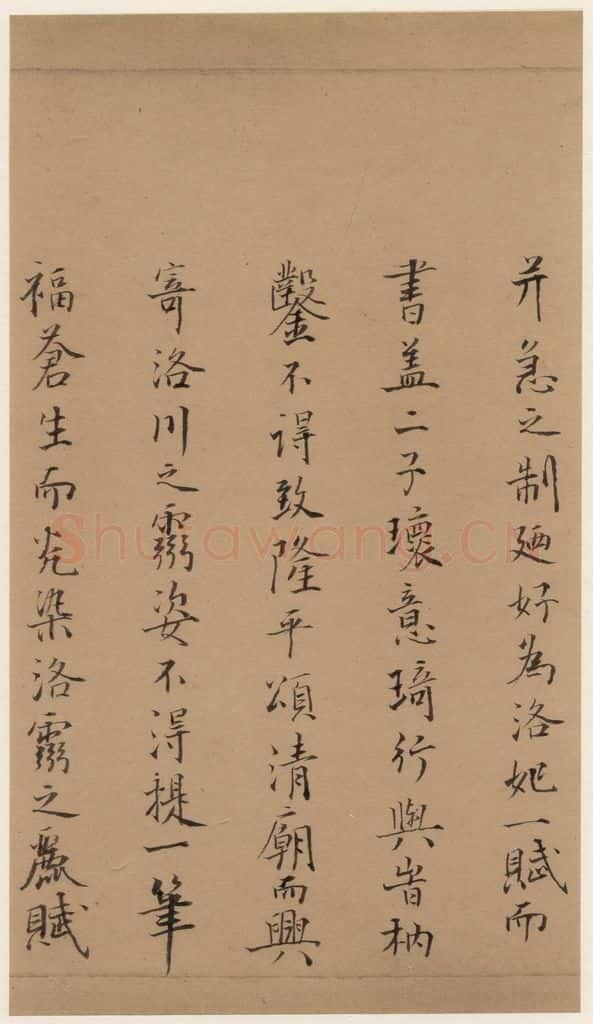 并急之制廼好為洛妃一賦而
書盖二子瓌意琦行與旹枘
鑿不得致隆平頌清廟而興
寄洛川之靈姿不得提一筆
福蒼生而先染洛靈之麗賦
Shufawang.cn